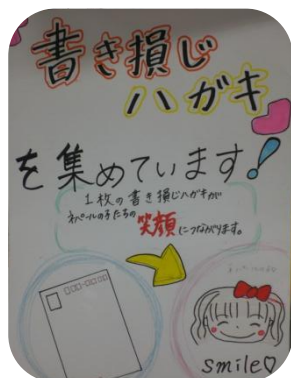 書き損じ
ハガキ
を集めています!
1枚の書き損じハガキが
ネパールの子たちの
笑顔につながります。
smile♡